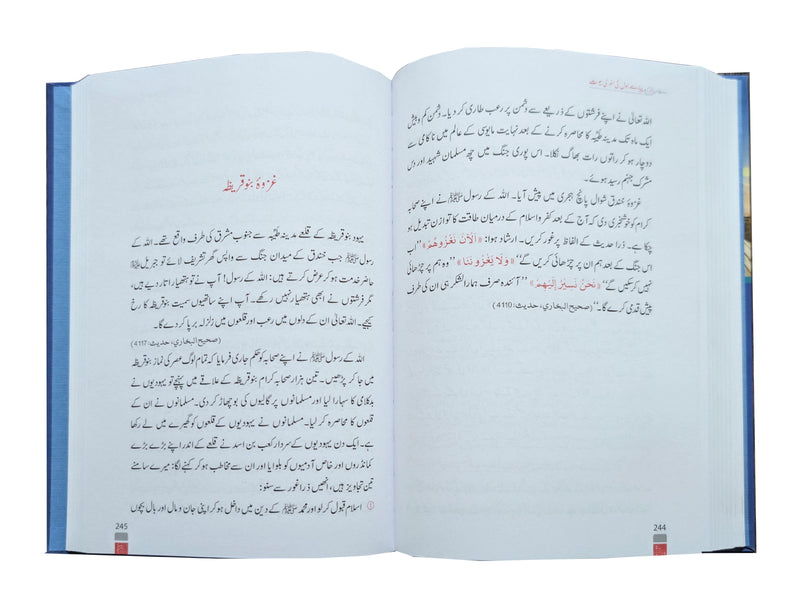 اللہ تعالیٰ نے اپنے فرشتوں کے ذریعے سے دشمن پر رعب طاری کر دیا۔ دشمن کم و بیش
ایک ماہ تک مدینہ طیبہ کا محاصرہ کرنے کے بعد نہایت مایوسی کے عالم میں ناکامی سے
دوچار ہو کر راتوں رات بھاگ نکلا۔ اس پوری جنگ میں چھ مسلمان شہید اور دس
مشرک جہنم رسید ہوئے۔
غزوۂ خندق شوال پانچ ہجری میں پیش آیا۔ اللہ کے رسول ﷺ نے اپنے صحابہ
کرام کو خوشخبری دی کہ آج کے بعد کفر و اسلام کے درمیان طاقت کا توازن تبدیل ہو
چکا ہے۔ ذرا حدیث کے الفاظ پر غور کریں۔ ارشاد ہوا: «اَلْآنَ نَغْزُوهُمْ» ’’اب
اس جنگ کے بعد ہم ان پر چڑھائی کریں گے‘‘ «وَلَا يَغْزُونَنَا» ’’وہ ہم پر چڑھائی
نہیں کر سکیں گے‘‘ «نَحْنُ نَسِيرُ إِلَيْهِمْ» ’’آئندہ صرف ہمارا لشکر ہی ان کی طرف
پیش قدمی کرے گا۔‘‘ (صحیح البخاري، حديث: 4110)
244
غزوۂ بنو قریظہ
یہود بنو قریظہ کے قلعے مدینہ طیبہ سے جنوب مشرق کی طرف واقع تھے۔ اللہ کے
رسول ﷺ جب خندق کے میدان جنگ سے واپس گھر تشریف لائے تو جبریل
حاضر خدمت ہو کر عرض کرتے ہیں: اللہ کے رسول! آپ نے تو ہتھیار اتار دیے ہیں،
مگر فرشتوں نے ابھی ہتھیار نہیں رکھے۔ آپ اپنے ساتھیوں سمیت بنو قریظہ کا رخ
کیجیے۔ اللہ تعالیٰ ان کے دلوں میں رعب اور قلعوں میں زلزلہ برپا کر دے گا۔
(صحیح البخاري، حديث: 4117)
اللہ کے رسول ﷺ نے اپنے صحابہ کو حکم جاری فرمایا کہ تمام لوگ عصر کی نماز بنو قریظہ
میں جا کر پڑھیں۔ تین ہزار صحابہ کرام بنو قریظہ کے علاقے میں پہنچے تو یہودیوں نے
بدکلامی کا سہارا لیا اور مسلمانوں پر گالیوں کی بوچھاڑ کر دی۔ مسلمانوں نے ان کے
قلعوں کا محاصرہ کر لیا۔ مسلمانوں نے یہودیوں کے قلعوں کو گھیرے میں لے رکھا
ہے۔ ایک دن یہودیوں کے سردار کعب بن اسد نے قلعے کے اندر اپنے بڑے بڑے
کمانڈروں اور خاص آدمیوں کو بلوایا اور ان سے مخاطب ہو کر کہنے لگا: میرے سامنے
تین تجاویز ہیں، انھیں ذرا غور سے سنو:
① اسلام قبول کر لو اور محمد ﷺ کے دین میں داخل ہو کر اپنی جان و مال اور بال بچوں
245